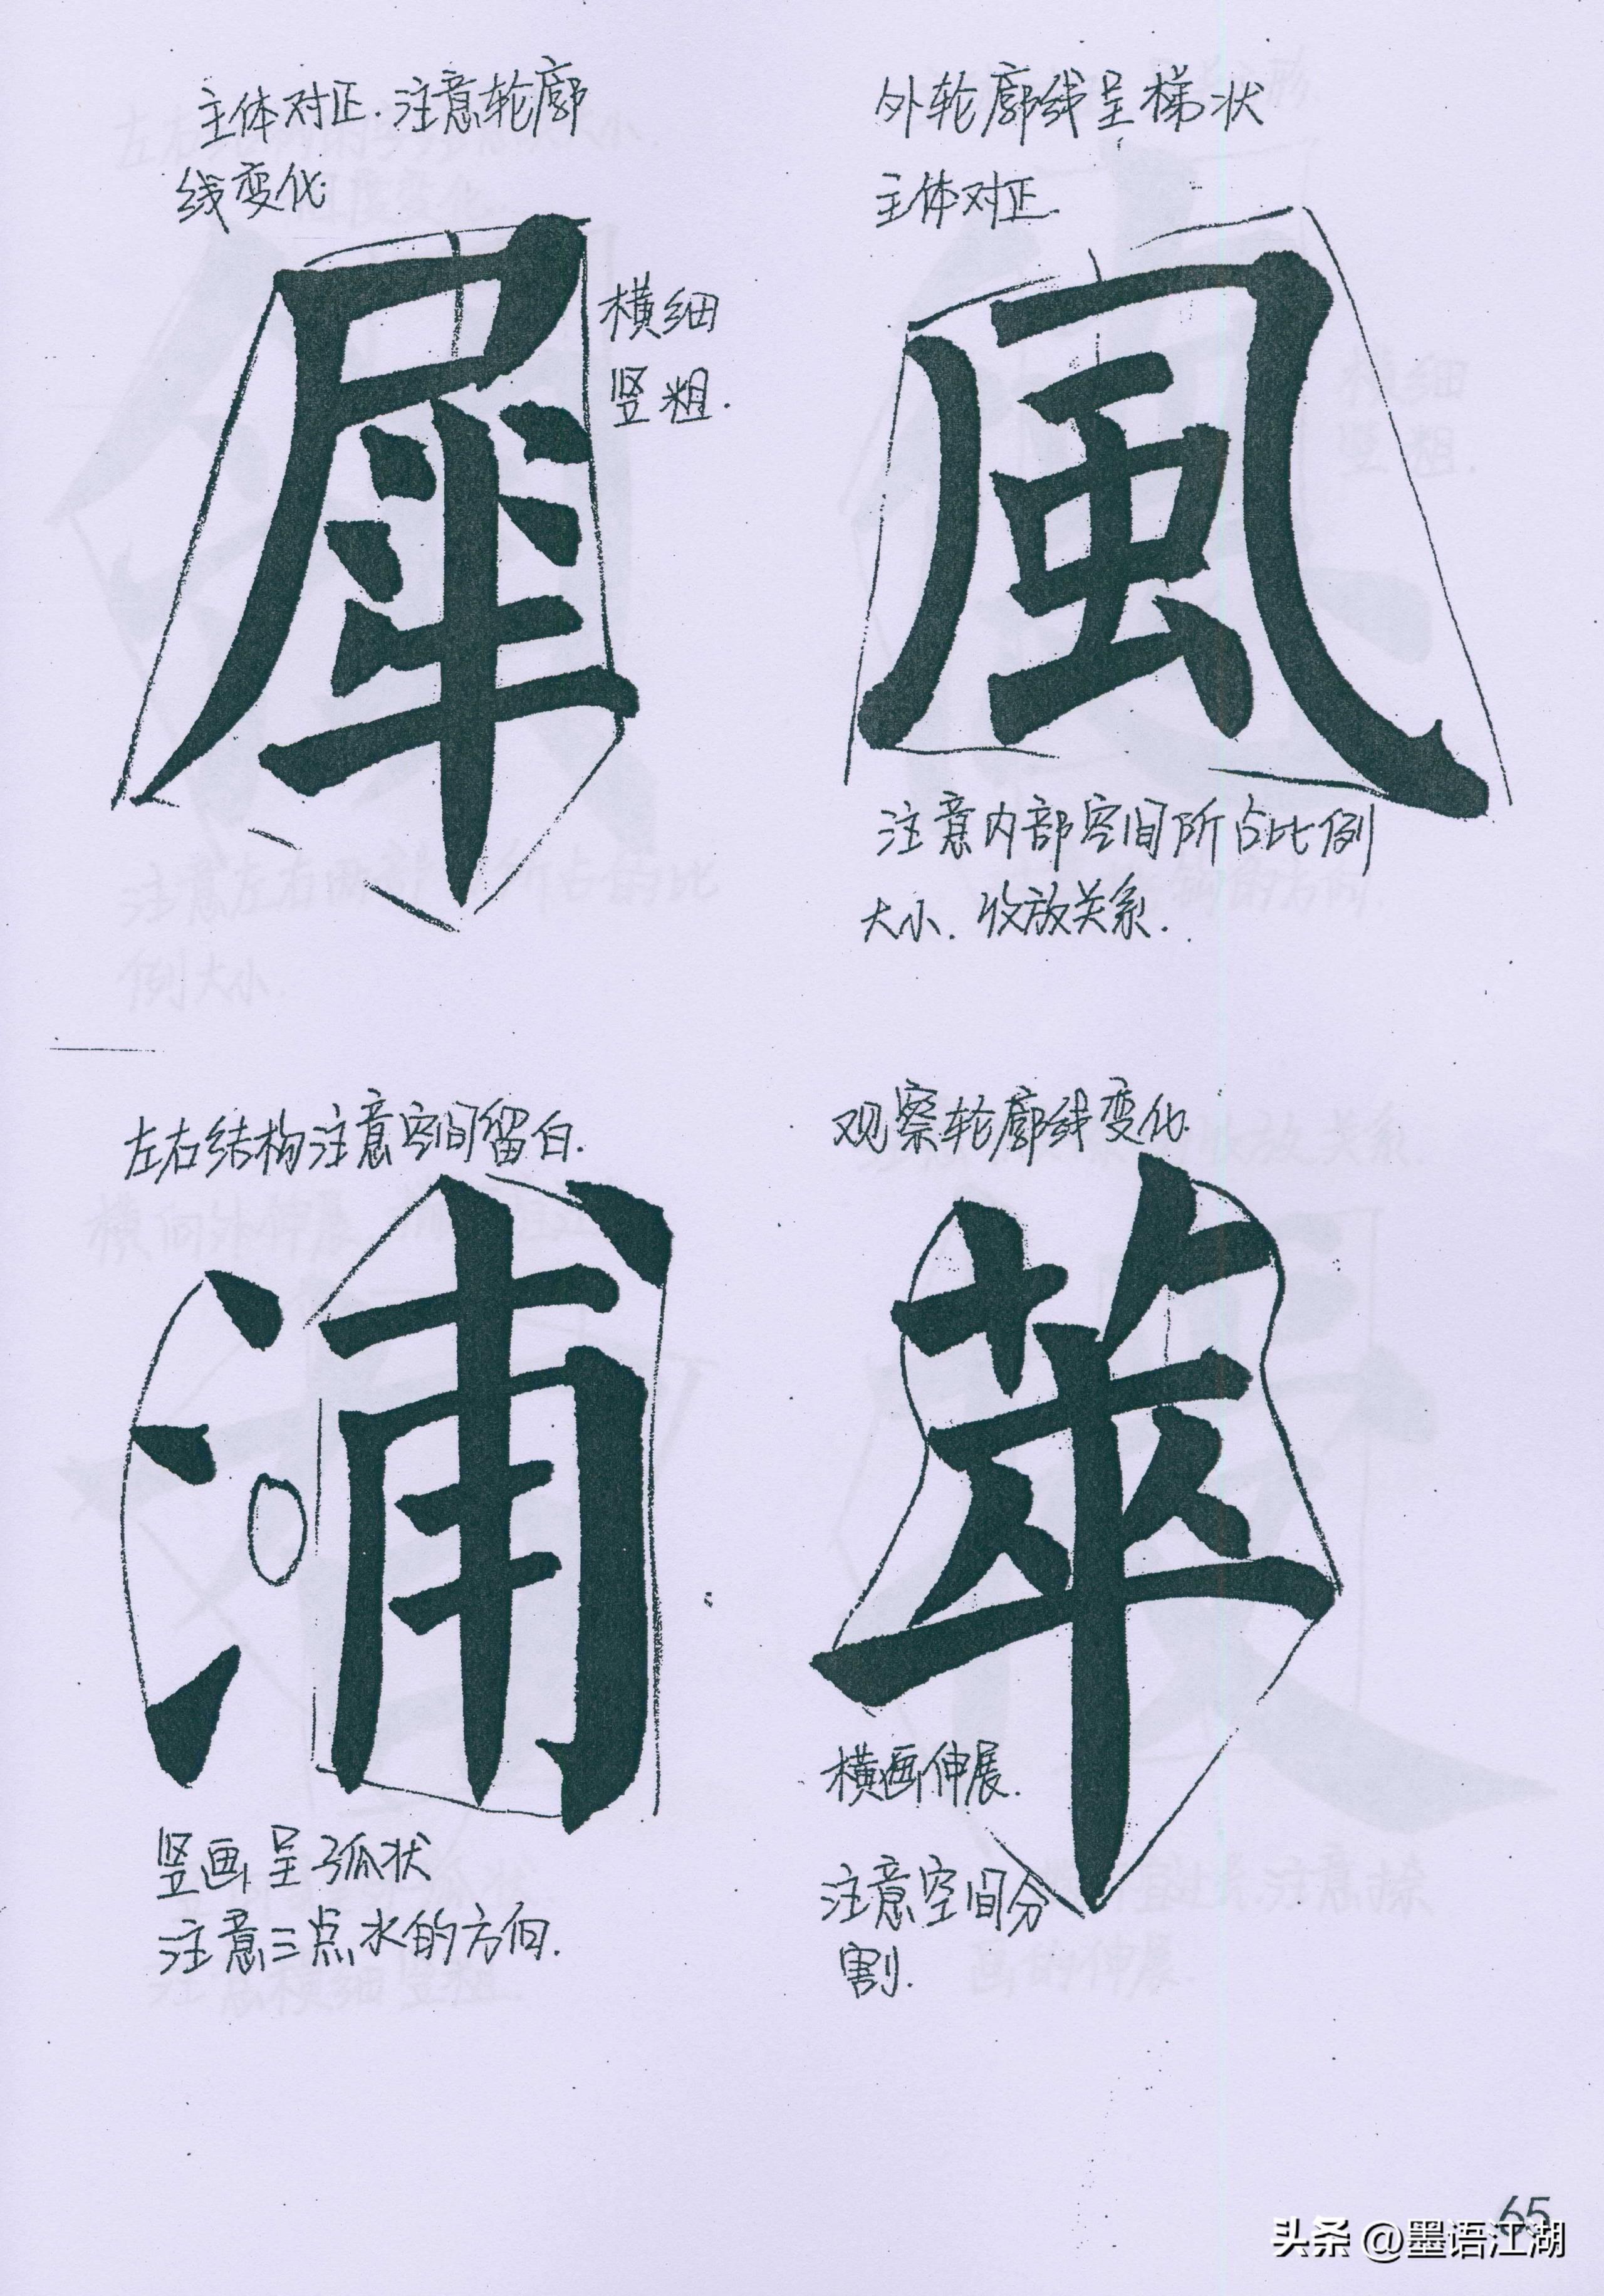 主体对正.注意轮廓
线变化.
犀
横细
竖粗.
外轮廓线呈梯状
主体对正.
風
注意内部空间所占比例
大小.收放关系.
左右结构注意空间留白.
浦
竖画呈弧状
注意三点水的方向.
观察轮廓线变化.
萃
横画伸展.
注意空间分
割.
65
头条 @墨语江湖